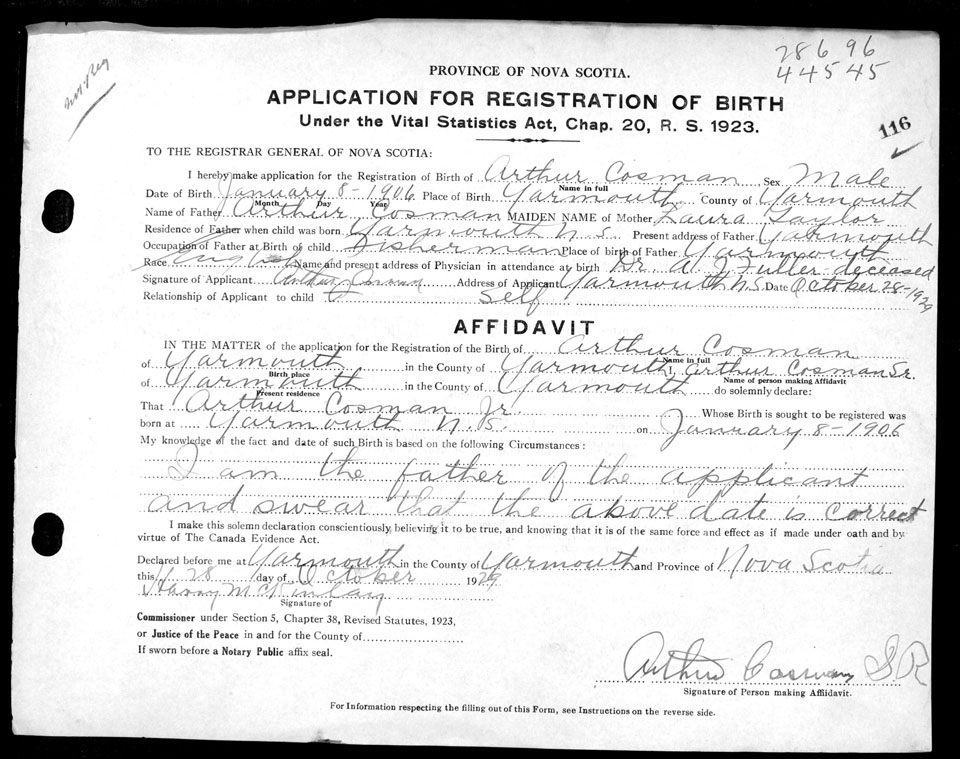 28696
44545
PROVINCE OF NOVA SCOTIA.
APPLICATION FOR REGISTRATION OF BIRTH
Under the Vital Statistics Act, Chap. 20, R. S. 1923.
116
TO THE REGISTRAR GENERAL OF NOVA SCOTIA:
I hereby make application for the Registration of Birth of Arthur Cosman Sex Male
Name in full
Date of Birth January 8-1906 Place of Birth Yarmouth County of Yarmouth
Month Day Year
Name of Father Arthur Cosman MAIDEN NAME of Mother Laura Taylor
Residence of Father when child was born Yarmouth N.S. Present address of Father Yarmouth
Occupation of Father at Birth of child Fisherman Place of birth of Father Yarmouth
Race English Name and present address of Physician in attendance at birth Dr. Fuller deceased
Signature of Applicant Arthur Cosman Address of Applicant Yarmouth N.S. Date October 28-1929
Relationship of Applicant to child Self
AFFIDAVIT
IN THE MATTER of the application for the Registration of the Birth of Arthur Cosman
Name in full
of Yarmouth in the County of Yarmouth I, Arthur Cosman Sr.
Birth place Name of person making Affidavit
of Yarmouth in the County of Yarmouth do solemnly declare:
Present residence
That Arthur Cosman Jr. Whose Birth is sought to be registered was
born at Yarmouth N.S. on January 8-1906
My knowledge of the fact and date of such Birth is based on the following Circumstances:
I am the father of the applicant
and swear that the above date is correct
I make this solemn declaration conscientiously, believing it to be true, and knowing that it is of the same force and effect as if made under oath and by
virtue of The Canada Evidence Act.
Declared before me at Yarmouth in the County of Yarmouth and Province of Nova Scotia
this 28 day of October 1929
Harry McKinlay
Signature of
Commissioner under Section 5, Chapter 38, Revised Statutes, 1923,
or Justice of the Peace in and for the County of
If sworn before a Notary Public affix seal.
Arthur Cosman SR
Signature of Person making Affidavit.
For Information respecting the filling out of this Form, see Instructions on the reverse side.